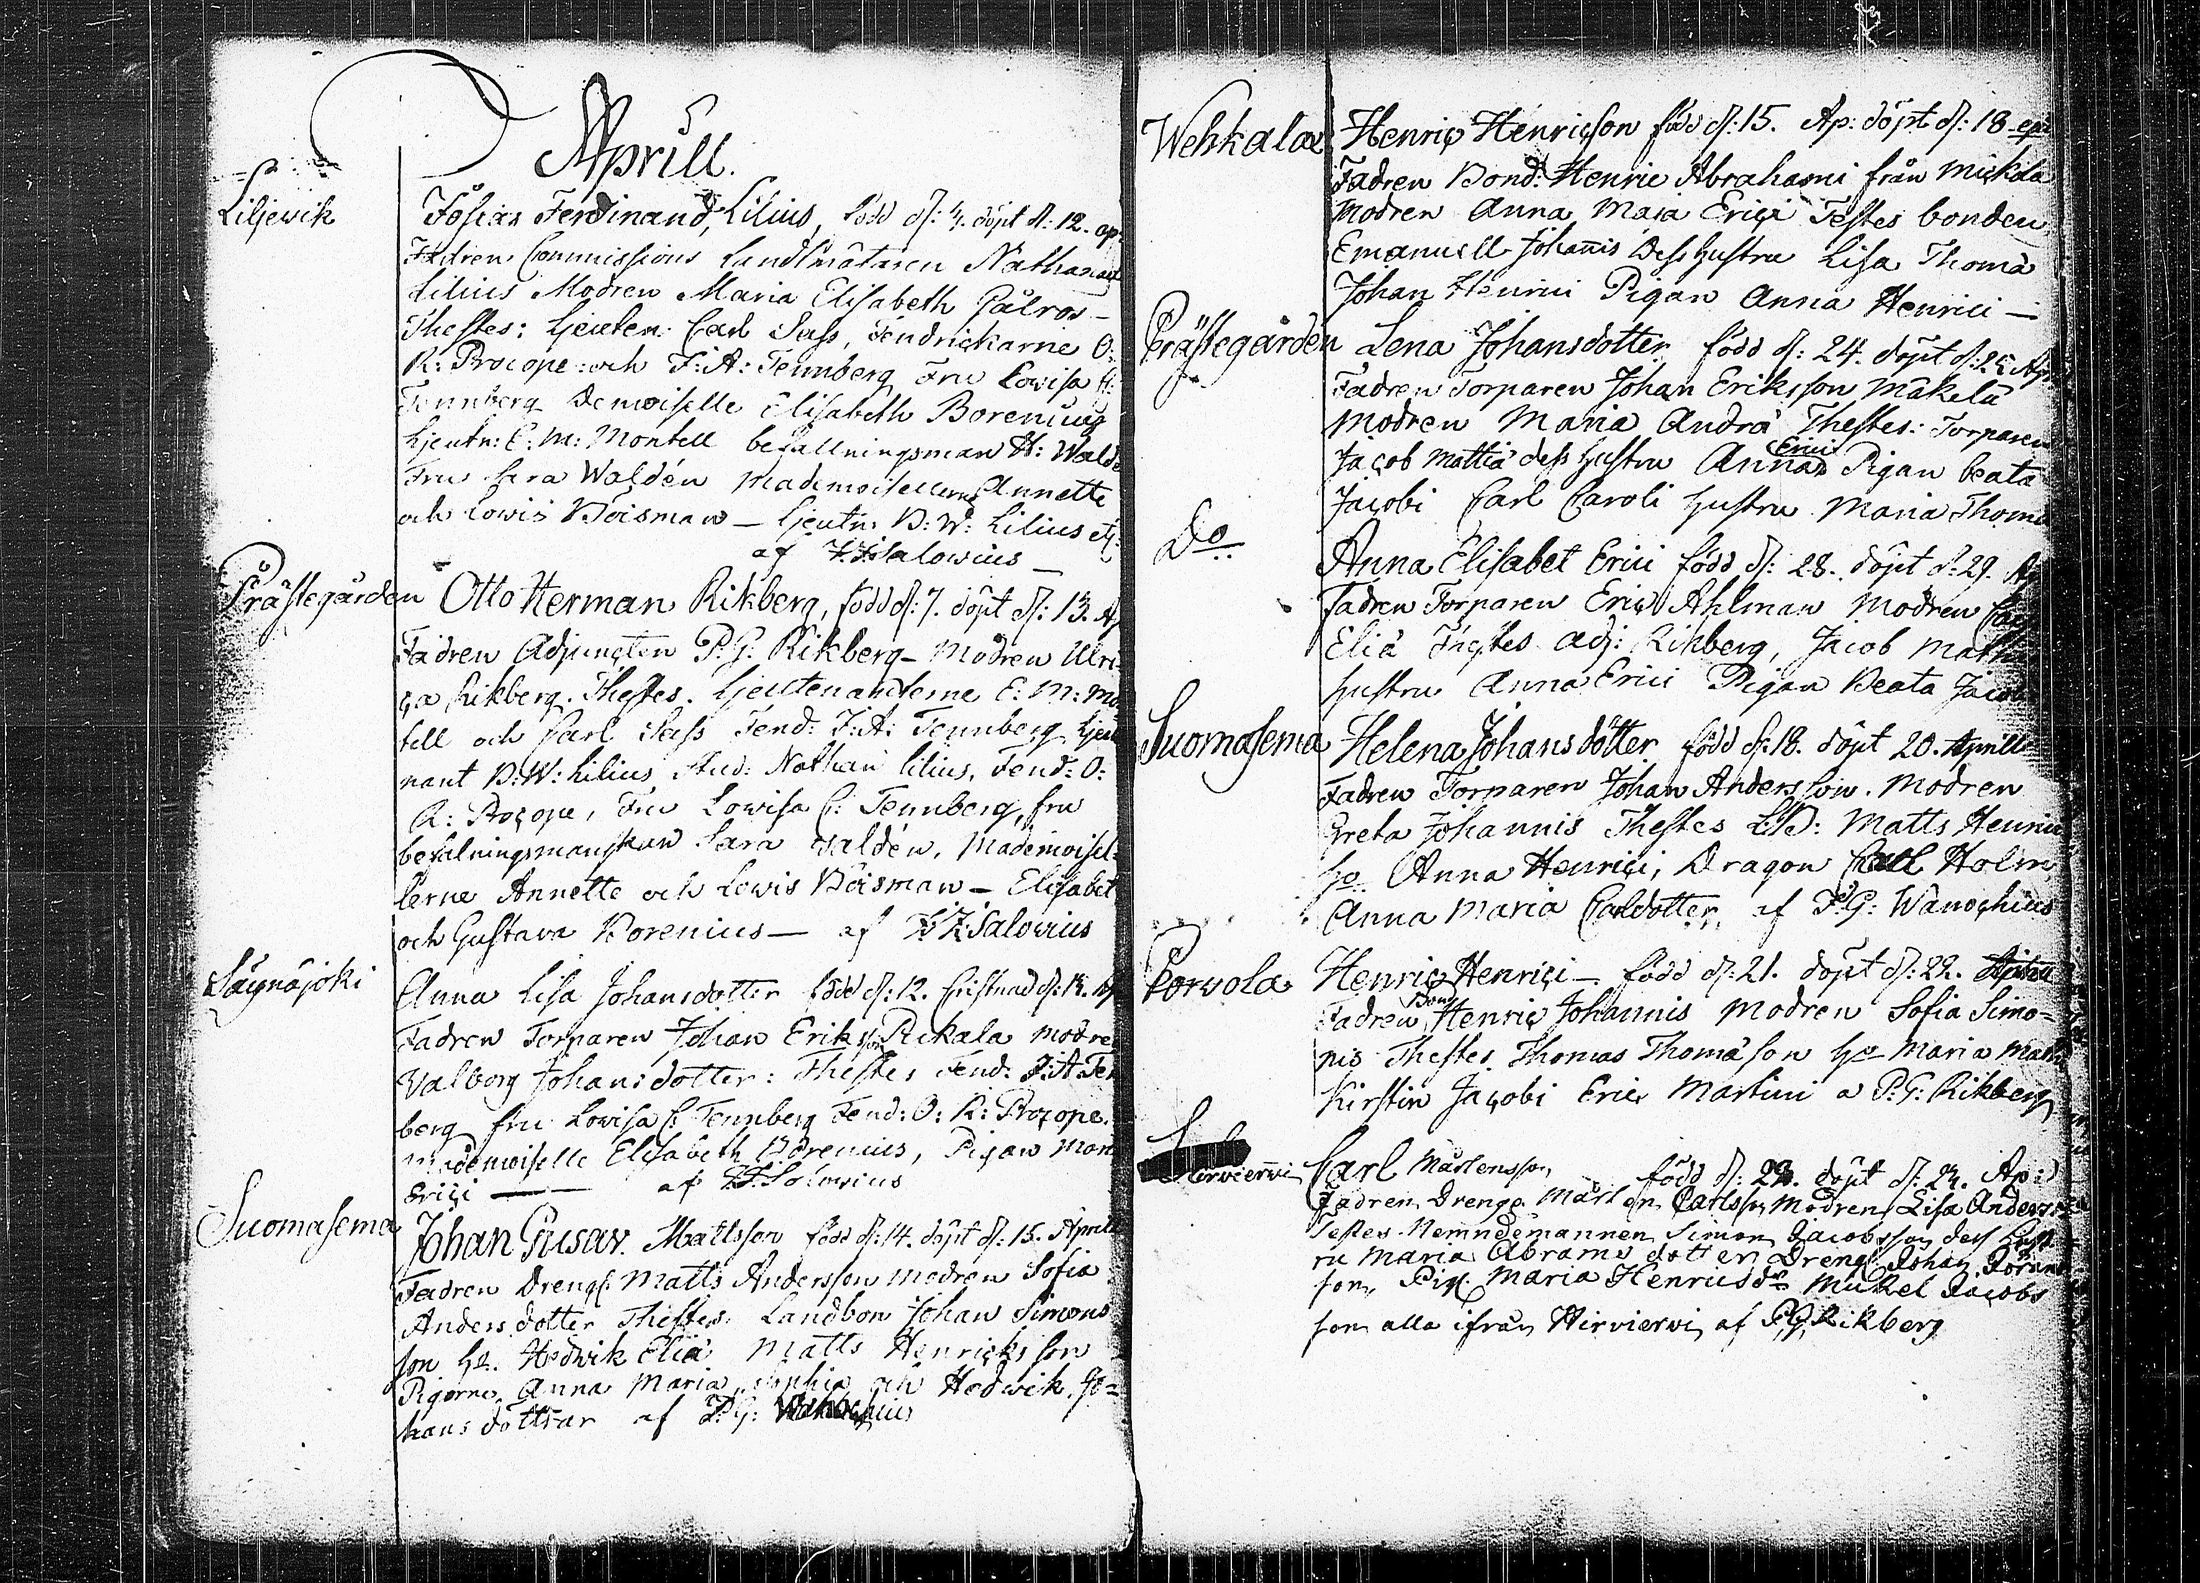 Aprill.
Liljewik
Josias Ferdinand Lilius, född d: 4. döpt d: 12. ap:
Fadren Commissions Landtmätaren Nathanael
Lilius Modren Maria Elisabeth
Thestes: Ljeuten: Carl Sass, Fendrickarne O:
R: Procope: och F: A: Tennberg Fru Lowisa C:
Tennberg Demoiselle Elisabeth Borenius
Ljeutn: E: M: Montell befallningsman H: Waldé
Fru Sara Waldén Mademoisellerne Annette
och Lowis Boisman — Ljeutn: B: W: Lilius
af Salovius —
Prästegården
Otto Herman Rikberg, född d: 7. döpt d: 13. Ap
Fadren Adjuncten P: G: Rikberg — Modren Ulri-
ca Rikberg. Thestes. Ljeutenanterne E: M: Mo
tell och Carl Sass Fend: F: A: Tennberg Ljeut
nant B: W: Lilius, Stud: Nathan Lilius, Fend: O:
R: Procope, Fru Lowisa C: Tennberg, fru
befalningsmanskan Sara Waldén, Mademoisel-
lerne Annette och Lowis Boisman — Elisabet
och Gustava Borenius — af Salovius
Anna Lisa Johansdotter född d: 12. Cristnad d: 14. Ap
Fadren Torparen Johan Eriksson Rekala modre
Valborg Johansdotter: Thestes Fend: F: A Ten
berg fru Lovisa C: Tennberg Fend: O: R: Procope.
Mademoiselle Elisabeth Borenius, Pigan
Eriçi — af Salowius
Suomasema
Johan Gusav. Mattsson född d: 14. döpt d: 15. Aprill
Fadren Drengs: Matts Andersson modren Sofia
Anders dotter Thestes. Landbon Johan Simons
son Ho. Hedwik Eliæ Matts Henricksson
Pigorna Anna Maria, Sophia och Hedwik Jo-
hans döttrar af
Wehkalax
Henriç Henriçson född d: 15. Ap: döpt d: 18
Fadren Bond: Henric Abrahami från Mickola
Modren Anna Maja Eriçi Testes bonden
Emanuell Johannis Dess hustru Lisa Thomæ
Johan Henrici Pigan Anna Henrici —
Prästegården
Lena Johansdotter född d: 24. döpt d: 25 Ap
Fadren Torparen Johan Eriksson Mäkelä
Modren Maria Andræ Thestes: Torparen
Jaçob Mattiæ dess hustru Anna Erici Pigan beata
Jaçobi Carl Caroli hustru Maria Thomæ
Do
Anna Elisabet Erici född d: 28. döpt d. 29. Ap
Fadren Torparen Eriç Ahlman Modren
Eliæ Thestes Adj: Rikberg, Jacob Matth
hustru Anna Erici Pigan Beata Jaco
Suomasema
Helena Johansdotter född d: 18. döpt 20. Aprill
Fadren Torparen Johan Andersson. Modren
Greta Johannis Thestes L: B: Matts Henrici
ho Anna Henriçi, Dragon Carl Holm
Anna Maria Carldotter af P: G: Wanochius
Porvola
Henriç Henriçi — född d: 21. döpt d: 22.
Fadren Bond Henriç Johannis Modren Sofia Simo-
nis Thestes Thomas Thomæson ho Maria Matt
Kirstin Jaçobi Eric Martini a P: G: Rikberg
Carl Mårtensson född d: 23. döpt d: 24. Ap:
Fadren Dreng Mårten Carlsson Modren Lisa Anders
Testes Nemndemannen Simon Jacobsson dess hust
ru Maria Abrams dotter Dreng Johan Jöran
son, Pig: Maria Henricsdr Mickel Jacobs
son alla ifrån Hirvierwi af P: G: Rikberg